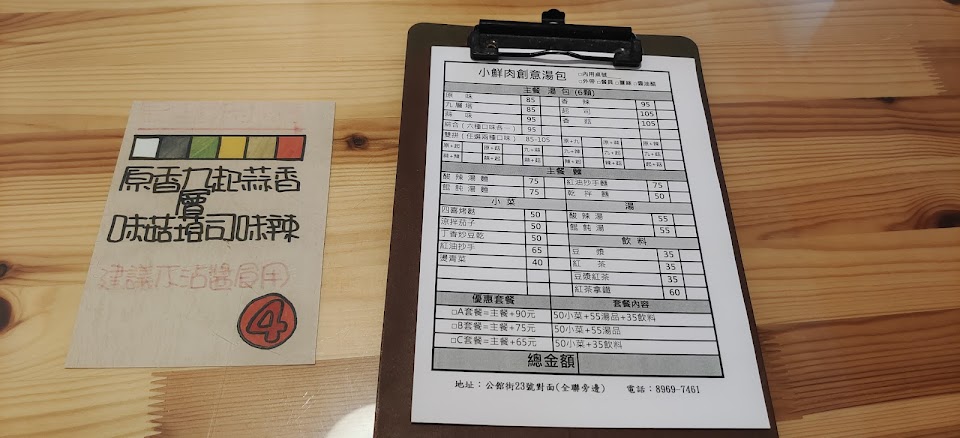 原香九起蒜香
層
味菇塔司味辣
建議不沾醬食用
4
小鮮肉創意湯包
□內用桌號
□外帶□餐具□薑絲□醬油醋
主餐 湯包(6顆)
原味 85 香辣 95
九層塔 85 起司 105
蒜味 95 香菇 105
綜合(六種口味各一) 95
雙拼(任選兩種口味) 85-105
主餐 麵
酸辣湯麵 75 紅油抄手麵 75
餛飩湯麵 75 乾拌麵 50
小菜 湯
四喜烤麩 50 酸辣湯 55
涼拌茄子 50 餛飩湯 55
丁香炒豆乾 50 飲料
紅油抄手 65 豆漿 35
燙青菜 40 紅茶 35
豆漿紅茶 35
紅茶拿鐵 60
優惠套餐 套餐內容
□A套餐=主餐+90元 50小菜+55湯品+35飲料
□B套餐=主餐+75元 50小菜+55湯品
□C套餐=主餐+65元 50小菜+35飲料
總金額
地址：公館街23號對面(全聯旁邊) 電話：8969-7461